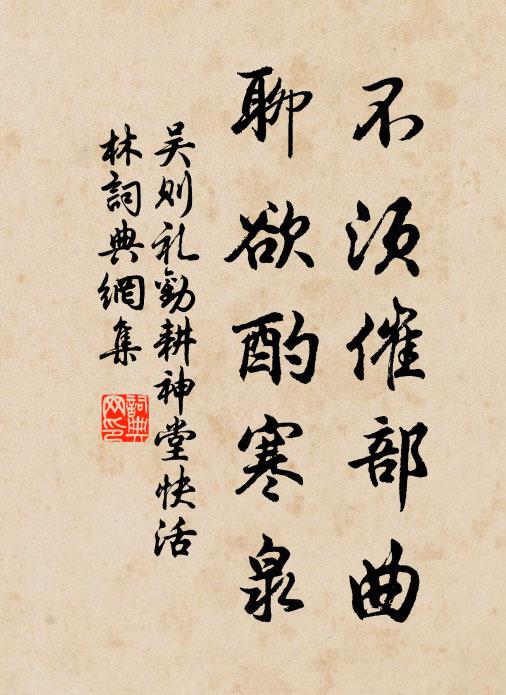 不须催部曲
聊欲酌寒泉
吴则礼劝耕神堂快活
林詞典網集
詞典
网印